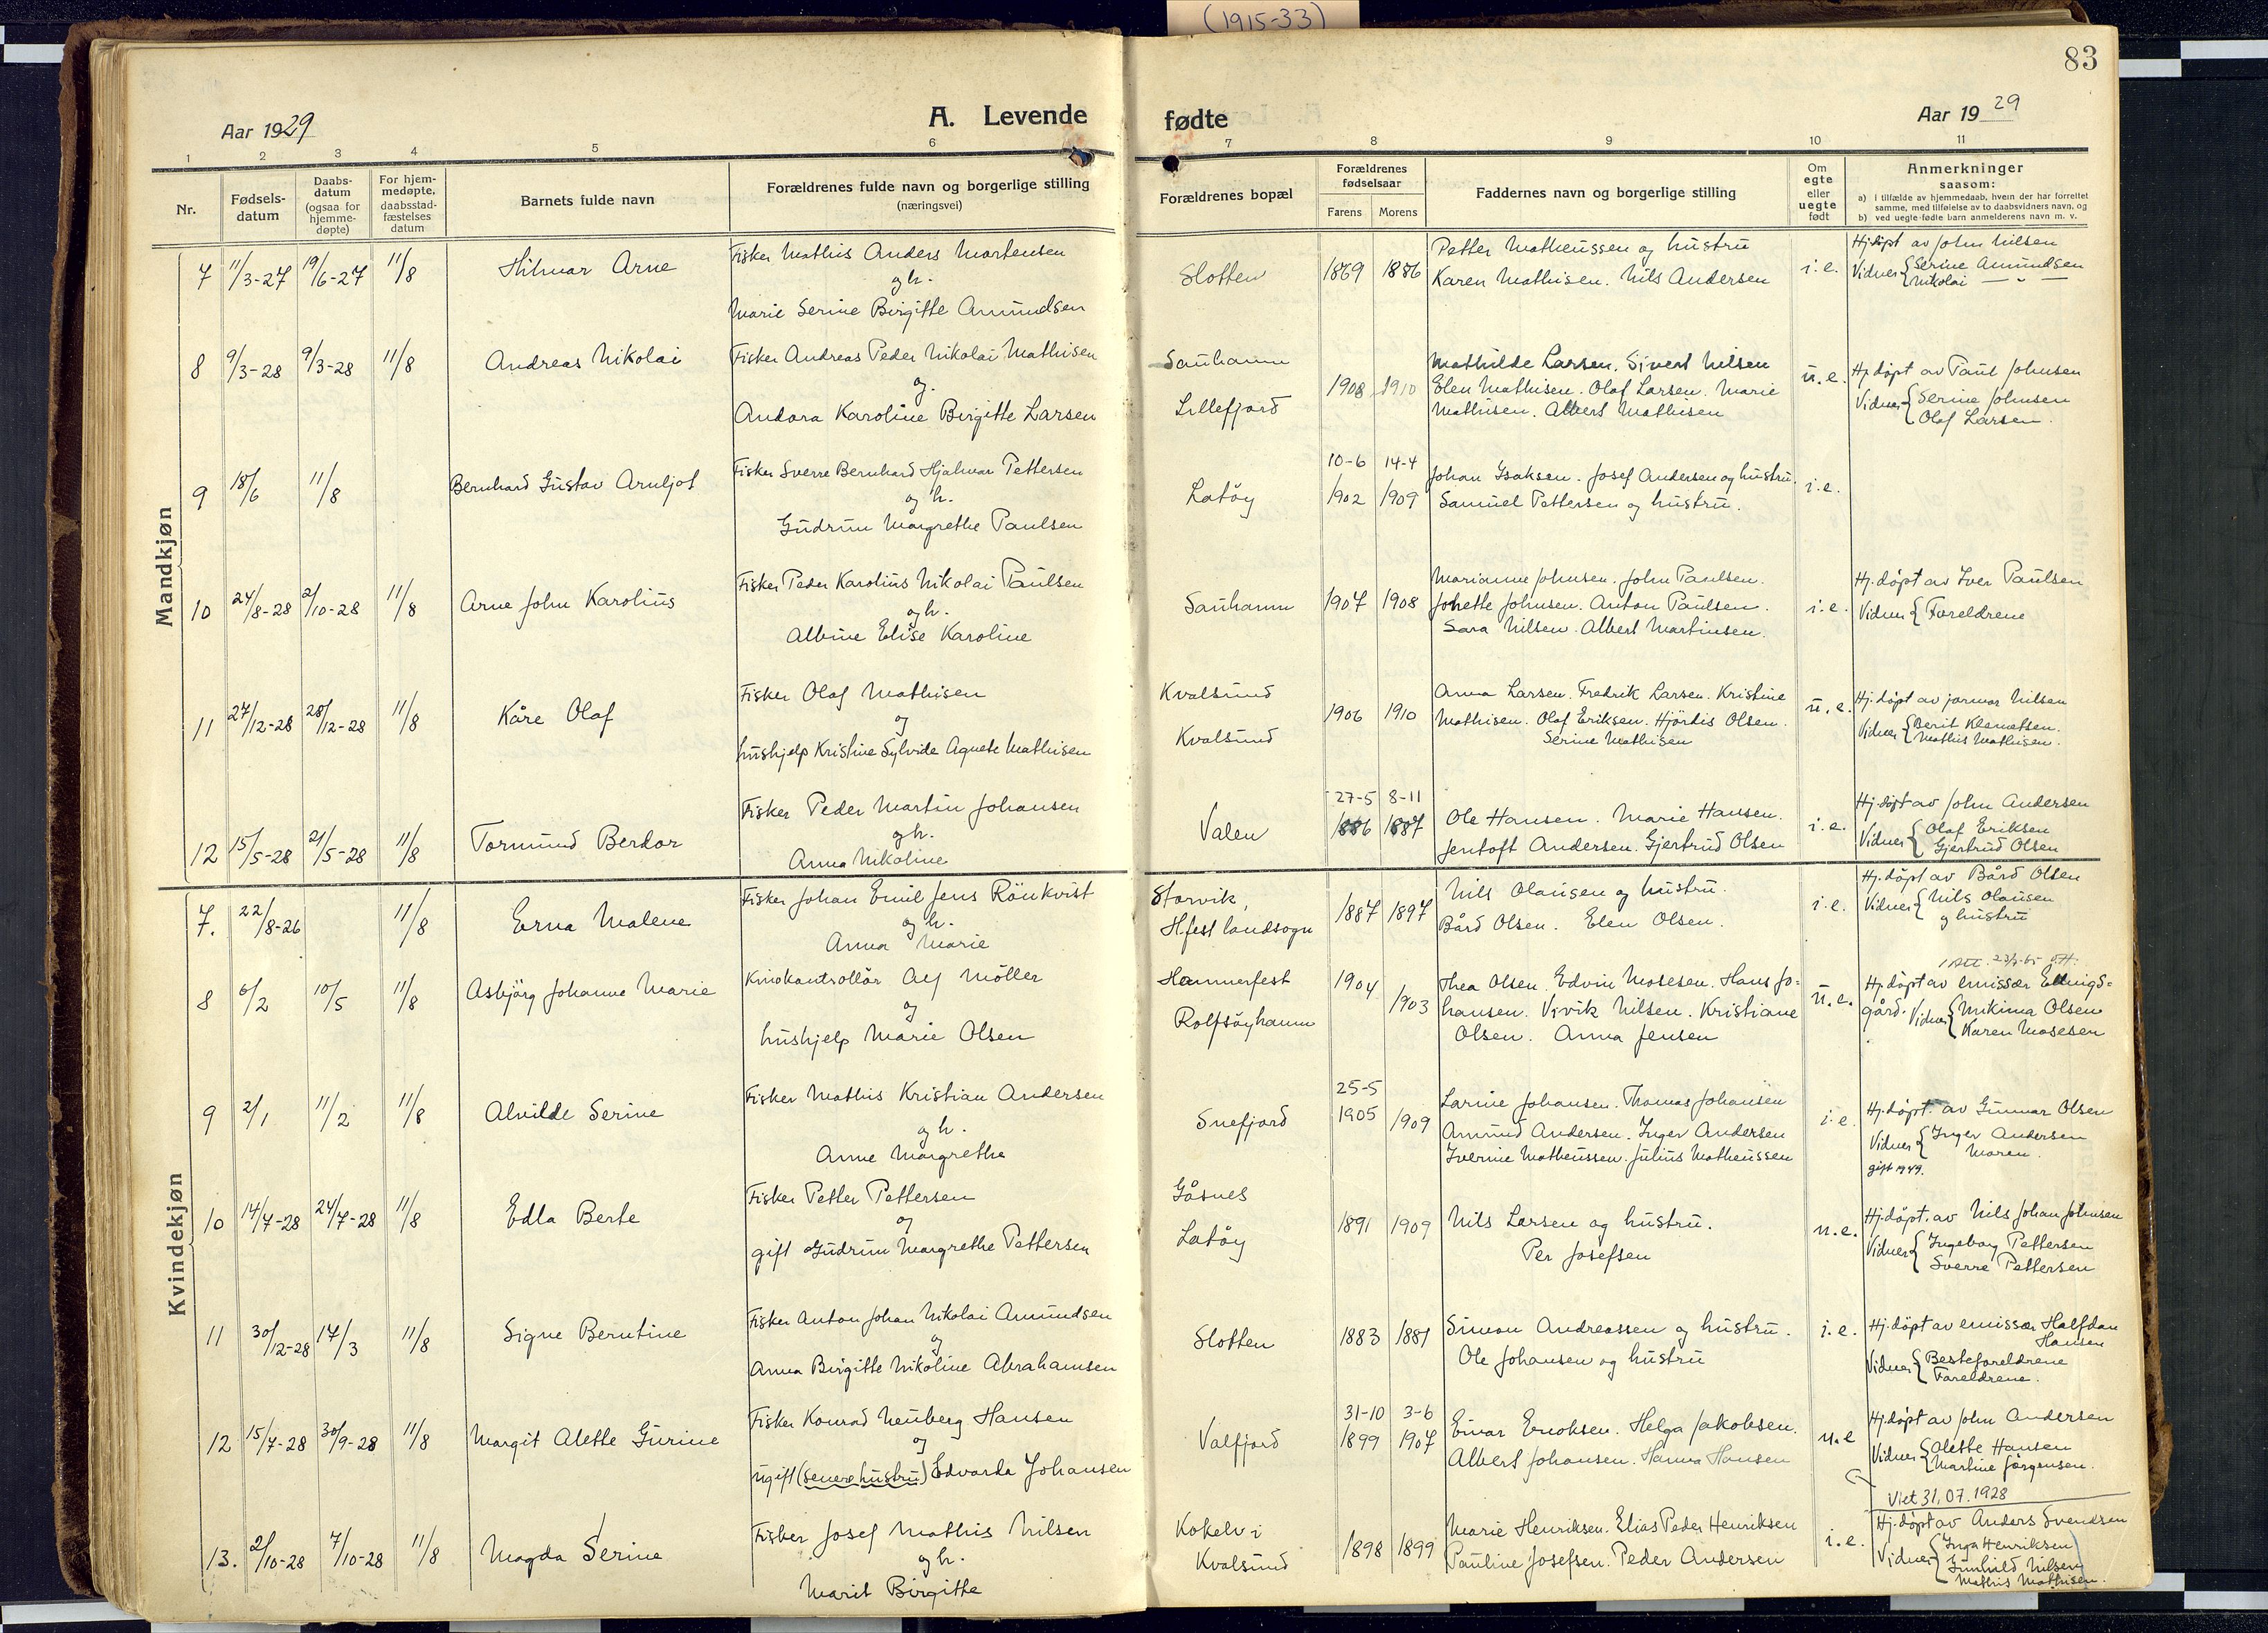 (1915-33)
83
Aar 1929
A. Levende
fødte
Aar 1929
1 2 3 4 5 6 7 8 9 10 11
Nr.
Fødsels-
datum
Daabs-
datum
(ogsaa for
hjemme-
døpte)
For hjem-
medøpte,
daabsstad-
fæstelses
datum
Barnets fulde navn
Forældrenes fulde navn og borgerlige stilling
(næringsvei)
Forældrenes bopæl
Forældrenes
fødselsaar
Farens Morens
Faddernes navn og borgerlige stilling
Om
egte
eller
uegte
født
Anmerkninger
saasom:
a) i tilfælde av hjemmedaab, hvem der har forrettet
samme, med tilføielse av to daabsvidners navn, og
b) ved uegte fødte barn anmelderens navn m. v.
Mandkjøn
7 11/3-27 19/6-27 11/8 Hilmar Arne
Fisker Mathis Anders Mortensen
og h.
Marie Serine Birgitte Amundsen
Slotten
1869 1886
Petter Matheussen og hustru
Karen Mathisen. Nils Andersen
i.e.
Hj.døpt av John Nilsen
Vidner { Serine Amundsen
Nikolai — " —
8 9/3-28 9/3-28 11/8 Andreas Nikolai
Fisker Andreas Peder Nikolai Mathisen
og
Andora Karoline Birgitte Larsen
Sauhamn
Lillefjord
1908 1910
Mathilde Larsen. Sivert Nilsen
Elen Mathisen. Olaf Larsen. Marie
Mathisen. Albert Mathisen
u.e.
Hj.døpt av Paul Johnsen
Vidner { Serine Johnsen
Olaf Larsen.
9 18/6 11/8 Bernhard Gustav Arnljot
Fisker Sverre Bernhard Hjalmar Pettersen
og h.
Gudrun Margrethe Paulsen
Latøy
10-6 14-4
1902 1909
Johan Isaksen. Josef Andersen og hustru.
Samuel Pettersen og hustru.
i.e.
10 24/8-28 2/10-28 11/8 Arne John Karolius
Fisker Peder Karolius Nikolai Paulsen
og h.
Albine Elise Karoline
Sauhamn
1907 1908
Marianne Johnsen. John Paulsen.
Johette Johnsen. Anton Paulsen.
Sara Nilsen. Albert Martinsen.
i.e.
Hj.døpt av Iver Paulsen
Vidner { Foreldrene
11 27/12-28 28/12-28 11/8 Kåre Olaf
Fisker Olaf Mathisen
og
hushjelp Kristine Sylvide Agnete Mathisen
Kvalsund
Kvalsund
1906 1910
Anna Larsen. Fredrik Larsen. Kristine
Mathisen. Olaf Eriksen. Hjördis Olsen.
Serine Mathisen
u.e.
Hj.døpt av Jarmar Nilsen
Vidner { Berit Klemetsen.
Mathis Mathisen.
12 15/5-28 21/5-28 11/8 Tormund Berkor
Fisker Peder Martin Johansen
og h.
Anna Nikoline
Valen
27-5 8-11
1886 1887
Ole Hansen. Marie Hansen.
Jentoft Andersen. Gjertrud Olsen
i.e.
Hj.døpt av John Andersen
Vidner { Olaf Eriksen
Gjertrud Olsen
Kvindekjøn
7. 22/8-26 11/8 Erna Malene
Fisker Johan Emil Jens Rönkvist
og h.
Anna Marie
Storvik,
Hfest landsogn
1887 1897
Nils Olausen og hustru.
Bård Olsen. Elen Olsen.
i.e.
Hj.døpt av Bård Olsen
Vidner { Nils Olausen
og hustru
8 6/2 10/5 11/8 Asbjörg Johanne Marie
Kinokontrollör Alf Möller
og
hushjelp Marie Olsen
Hammerfest
Rolfsøyhamn
1904
1903
Thea Olsen. Edvin Mosesen. Hans Jo-
hansen. Vivik Nilsen. Kristiane
Olsen. Anna Jensen
u.e.
Hj.døpt av emissær Ellings-
gård. Vidner { Nikima Olsen
Karen Mosesen
9 2/1 11/2 11/8 Alvilde Serine
Fisker Mathis Kristian Andersen
og h.
Anne Margrethe
Snefjord
25-5
1905 1909
Larine Johansen. Thomas Johansen
Amund Andersen. Inger Andersen
Iverine Matheussen. Julius Matheussen
i.e.
Hj.døpt av Gunnar Olsen
Vidner { Inger Andersen
Maren
gift 1949.
10 14/7-28 24/7-28 11/8 Edla Berte
Fisker Petter Pettersen
og
gift Gudrun Margrethe Pettersen
Gåsnes
Latøy
1891 1909
Nils Larsen og hustru.
Per Josefsen
u.e.
Hj.døpt. av Nils Johan Johnsen
Vidner { Ingeborg Pettersen
Sverre Pettersen
11 30/12-28 17/3 11/8 Signe Berntine
Fisker Anton Johan Nikolai Amundsen
og
Anna Birgitte Nikoline Abrahamsen
Slotten
1883 1881
Simon Andreassen og hustru.
Ole Johansen og hustru
i.e.
Hj.døpt av emissær Halfdan
Hansen
Vidner { Besteforeldrene
Foreldrene.
12 15/7-28 30/9-28 11/8 Margit Alette Gurine
Fisker Konrad Neuberg Hansen
og
ugift (senere hustru) Edvarda Johansen
Valfjord
31-10 3-6
1899 1907
Einar Enoksen. Helga Jakobsen.
Albert Johansen. Hanna Hansen
u.e
Hj.døpt av John Andersen
Vidner { Alette Hansen
Martine Jörgensen.
Viet 31.07.1928
13. 2/10-28 7/10-28 11/8 Magda Serine
Fisker Josef Mathis Nilsen
og h.
Marit Birgitte
Kokelv i
Kvalsund
1898 1899
Marie Henriksen. Elias Peder Henriksen
Pauline Josefsen. Peder Andersen
i.e.
Hj.døpt av Anders Svendsen
Vidner { Inga Henriksen
Gunhild Nilsen
Mathis Mathisen.